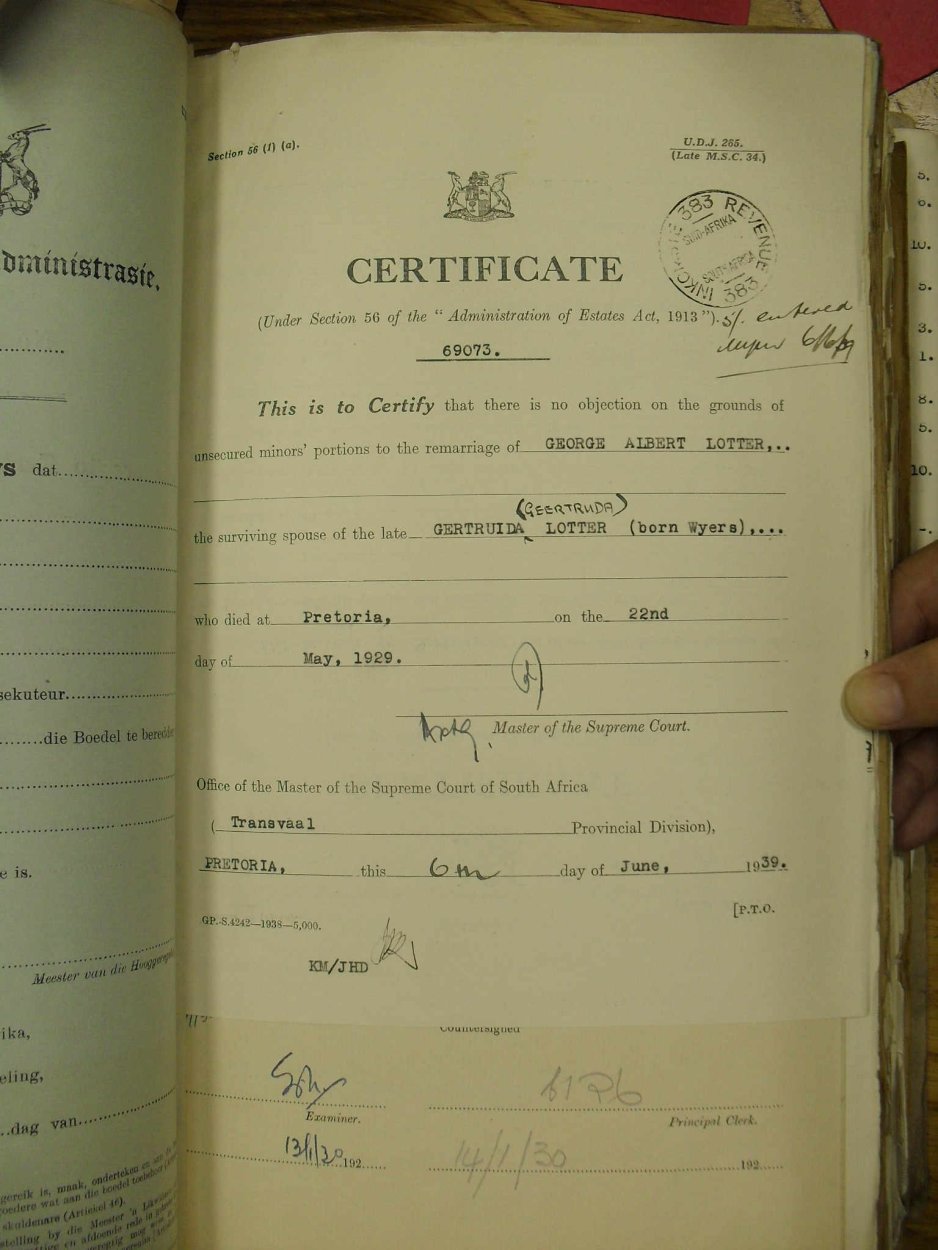 dministrasie.
S dat
sekuteur
die Boedel te
e is.
Meester van die
ika,
eling,
dag van
gereik is, maak, onderteken en
oedere wat aan die boedel
skuldenare (Artiekel 46).
stelling by die Meester 'n
Section 56 (1) (a).
U.D.J. 265.
(Late M.S.C. 34.)
383 REVENUE
SUID-AFRIKA
SOUTH AFRICA
INKOMSTE 383
CERTIFICATE
(Under Section 56 of the "Administration of Estates Act, 1913").
5/. entered
69073.
This is to Certify that there is no objection on the grounds of
unsecured minors' portions to the remarriage of GEORGE ALBERT LOTTER,..
(GEERTRUDA)
the surviving spouse of the late GERTRUIDA LOTTER (born Wyers),...
who died at Pretoria, on the 22nd
day of May, 1929.
Master of the Supreme Court.
Office of the Master of the Supreme Court of South Africa
(Transvaal Provincial Division),
PRETORIA, this 6th day of June, 1939.
[P.T.O.
GP.-S.4242—1938—5,000.
KM/JHD
Countersigned
Examiner.
Principal Clerk.
13/1/30 192
14/1/30 192
5.
6.
10.
5.
3.
1.
8.
5.
10.